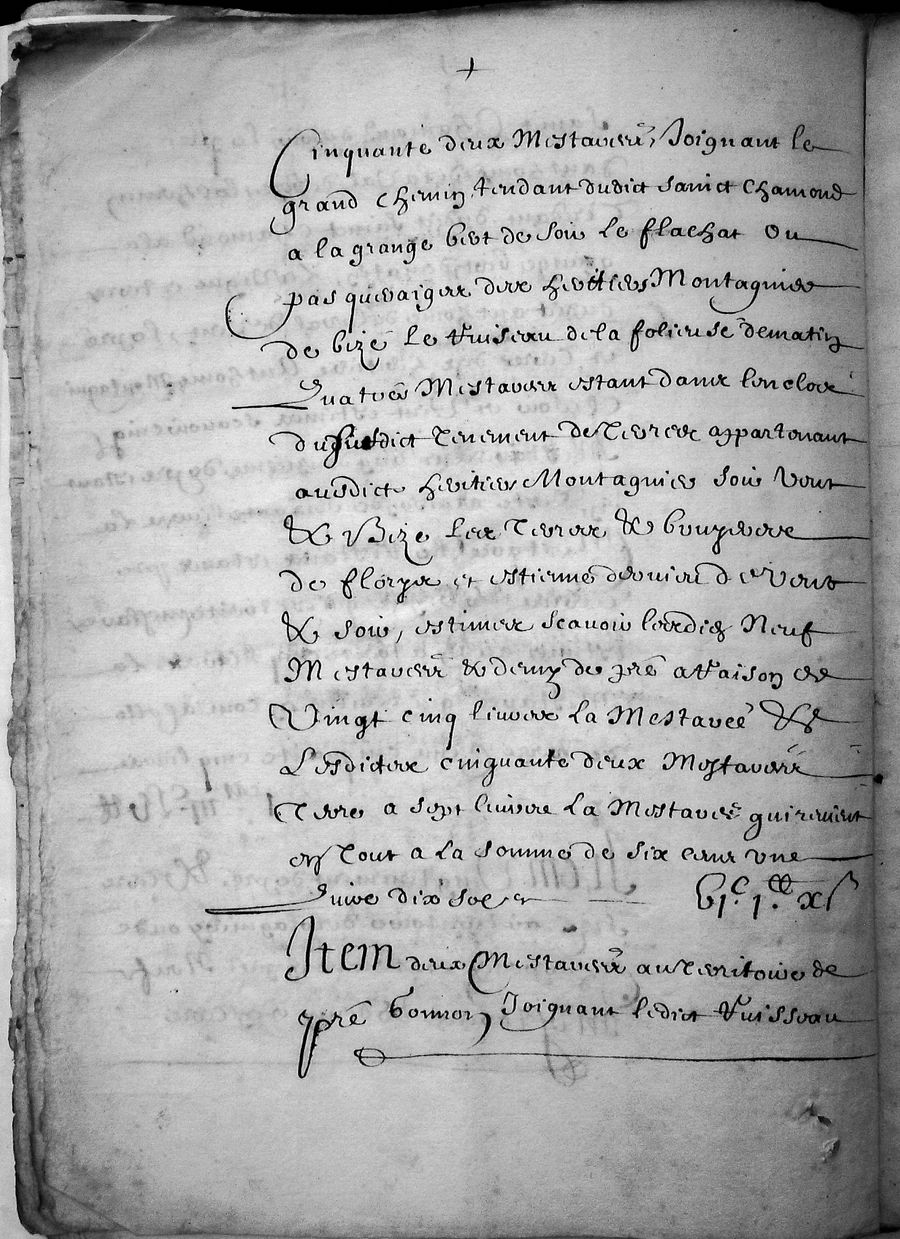 +
Cinquante deux Mestaverèes Joignant le
grand Chemin, tendant dudict sainct Chamond
a la grange vert de soir le flachat Ou
pasqueraiger des heritiers Montagnier
de bize Le Ruiseau de la folieuse de matin
Quatres Mestaverèes estant dans l'enclos
du susdict Tenement de Terres appartenant
ausdicts heritiers Montagnier soir Vent
& Bize Les Terres &
de et estienne de Vent
& soir, estimes scavoir lesdicts Neuf
Mestaverèes & demy de pré a Raison de
Vingt cinq livres la Mestaveé &
Lesdictes cinquante deux Mestaverèes
Terre a sept livres La Mestaverè quirevient
en Tout a la somme de six cens une
Livre dix sols vjc. jll. xs
Item deux Mestaverèes au Territoire de
pré Joignant ledict Ruisseau